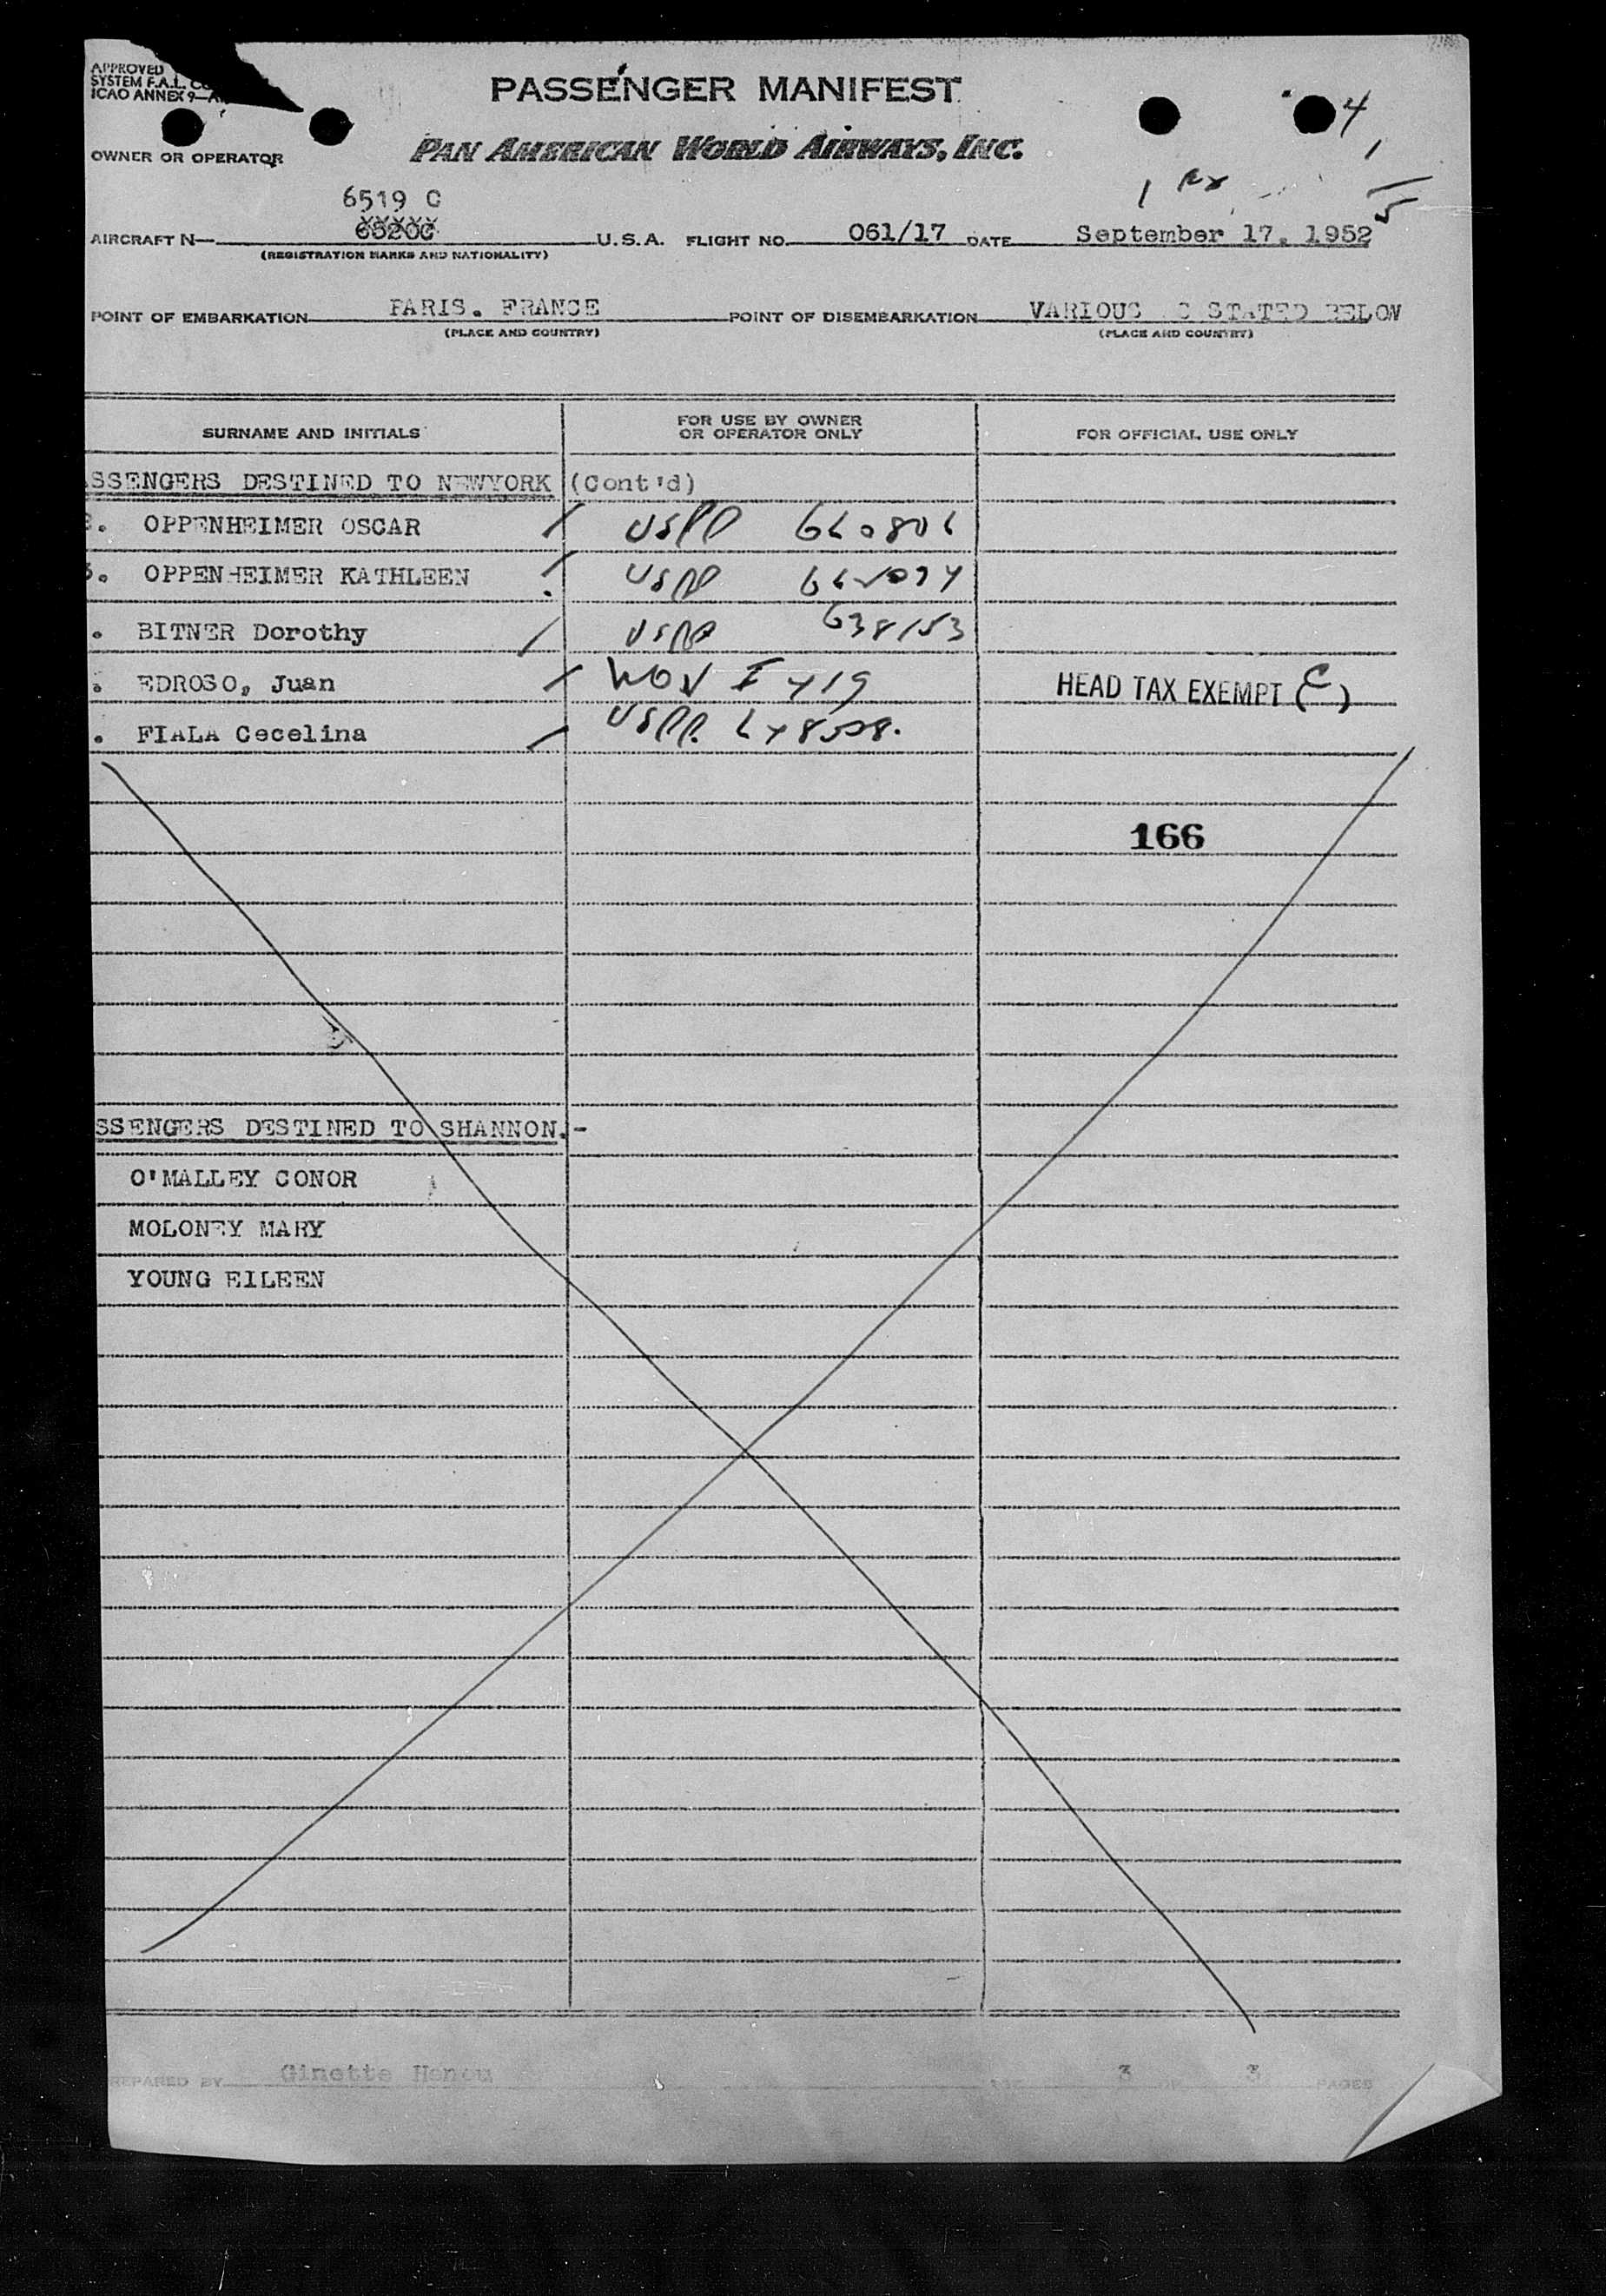 APPROVED
SYSTEM F.A.L. CO
ICAO ANNEX 9—A
PASSENGER MANIFEST
4
OWNER OR OPERATOR PAN AMERICAN WORLD AIRWAYS, INC.
1
1
5
6519 C
AIRCRAFT N— 6520C U.S.A. FLIGHT NO. 061/17 DATE September 17, 1952
(REGISTRATION MARKS AND NATIONALITY)
POINT OF EMBARKATION PARIS. FRANCE POINT OF DISEMBARKATION VARIOUS S STATED BELOW
(PLACE AND COUNTRY) (PLACE AND COUNTRY)
SURNAME AND INITIALS FOR USE BY OWNER OR OPERATOR ONLY FOR OFFICIAL USE ONLY
SSENGERS DESTINED TO NEWYORK (Cont'd)
. OPPENHEIMER OSCAR / USPP
. OPPENHEIMER KATHLEEN / USPP
. BITNER Dorothy / USPP 638153
. EDROSO, Juan / HEAD TAX EXEMPT (C)
. FIALA Cecelina / USPP.
166
SSENGERS DESTINED TO SHANNON.-
O'MALLEY CONOR
MOLONEY MARY
YOUNG EILEEN
PREPARED BY Ginette 3 OF 3 PAGES